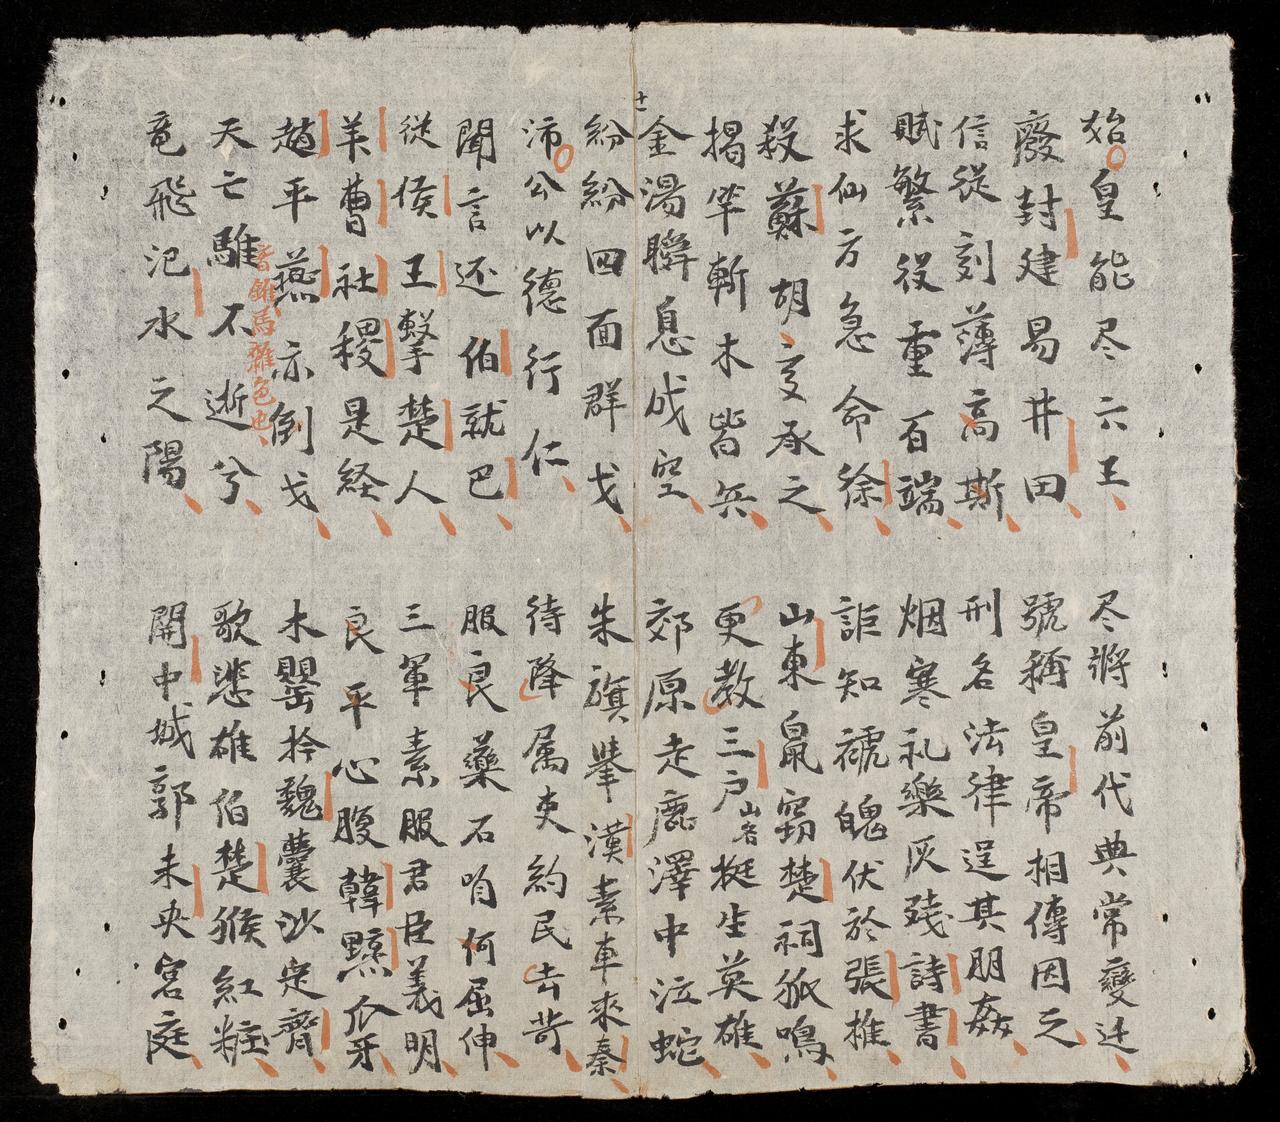 始皇能尽六王 尽將前代典常變迁
廢封建易井田 號稱皇帝相傳因之
信從刻薄高斯 刑名法律逞其朋姦
賦繁役重百端 烟寒礼樂灰残詩書
求仙方急命徐 詎知褫魄伏於張椎
殺蘇胡亥承之 山東鼠竊楚祠狐鳴
揭竿斬木皆兵 更教三户山名挺生英雄
金湯瞬息成空 郊原走鹿澤中泣蛇
紛紛四面群戈 朱旗举漢素車來秦
沛公以德行仁 待降属吏約民去苛
聞言还伯就巴 服良藥石肯何屈伸
従侯王擊楚人 三軍素服君臣義明
羊曹社稷是経 良平心腹韓黥爪牙
趙平燕亦倒戈 木罌拎魏囊沙定齊
天亡騅不逝兮 歌悲雄伯楚猴紅粧
音錐馬雜色也
竜飛汜水之陽 関中城郭未央宮庭